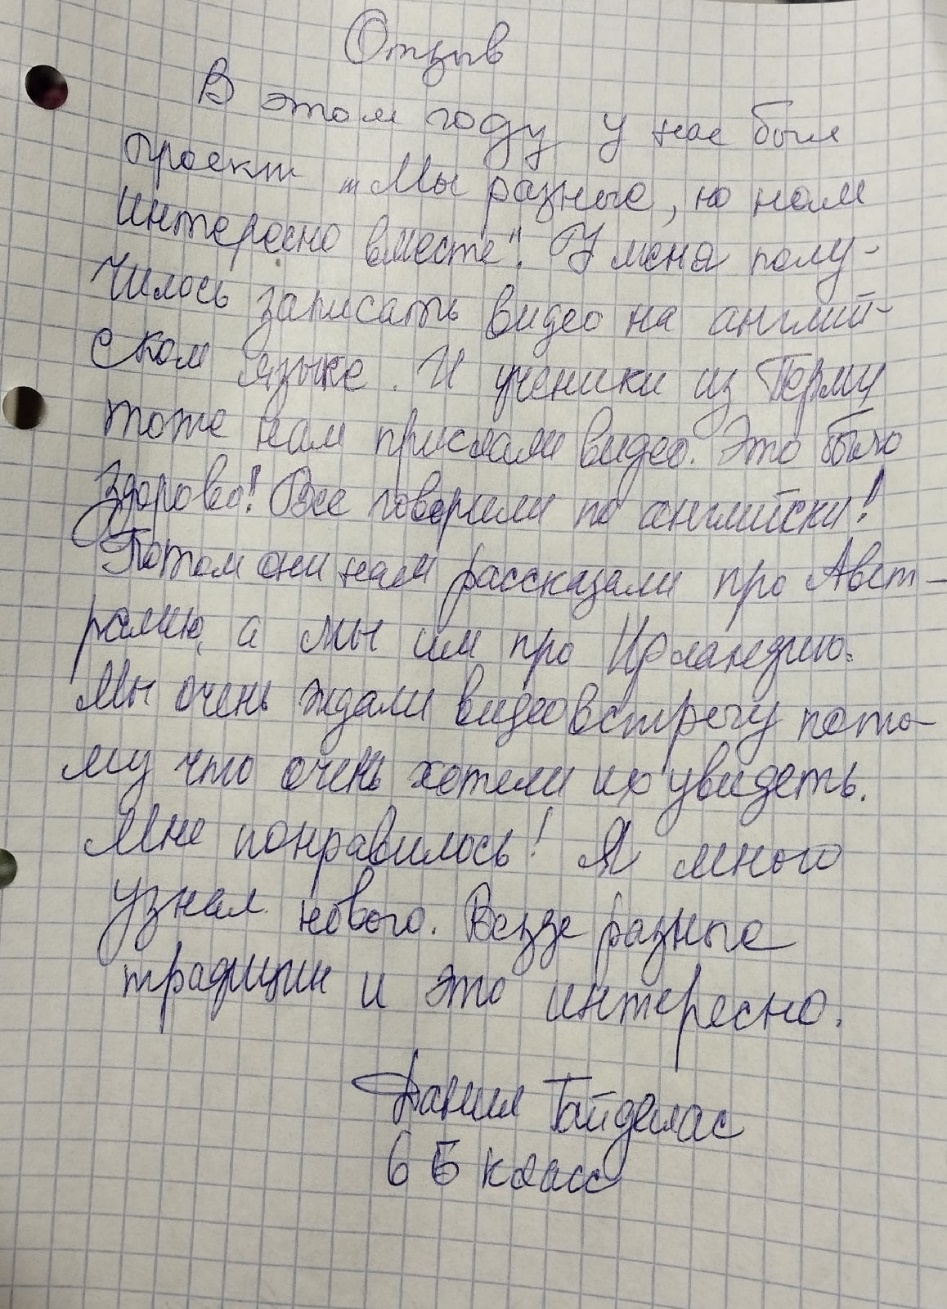 Отзыв
В этом году у нас был
проект „Мы разные, но нам
интересно вместе". У меня полу-
чилось записать видео на англий-
ском языке. И ученики из Перми
тоже нам прислали видео. Это было
здорово! Все говорили по английски!
Потом они нам рассказали про Авст-
ралию, а мы им про Ирландию.
Мы очень ждали видеовстречу пото-
му что очень хотели их увидеть.
Мне понравилось! Я много
узнал нового. Везде разные
традиции и это интересно.
Даниил
6 Б класс